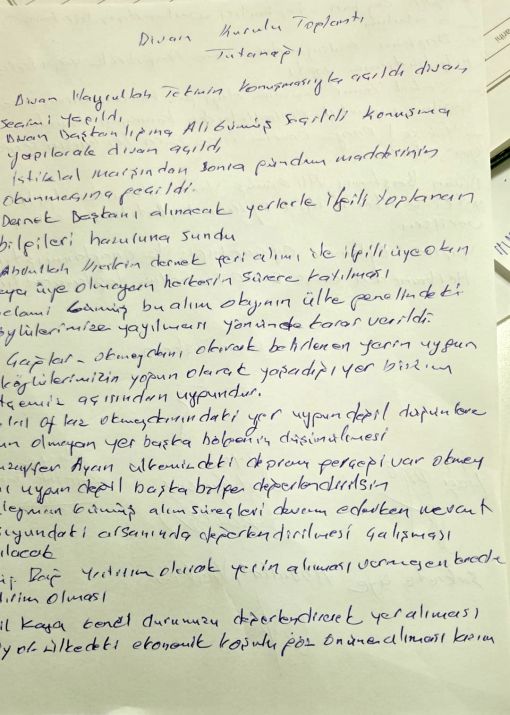 Divan Kurulu Toplantı
Tutanağı
Divan Hayrullah Tekinin konuşmasıyla açıldı divan
seçimi yapıldı
Divan Başkanlığına Ali Gümüş seçildi konuşma
yapılarak divan açıldı
istiklal marşından sonra gündem maddesinin
okunmasına geçildi.
Dernek Başkanı alınacak yerlerle ilgili toplanan
bilgileri huzuruna sundu
Abdullah dernek yeri alımı ile ilgili üye olan
veya üye olmayan herkesin sürece katılması
elami Gümüş bu alım olayının ülke genelindeki
öylülerimize yayılması yönünde karar verildi.
okmeydanı olarak belirlenen yerin uygun
köylülerimizin yoğun olarak yaşadığı yer bizim
tçemiz açısından uygundur.
okmeydanındaki yer uygun değil düğünlere
un olmayan yer başka bölgenin düşünülmesi
uzaffer Ayan ülkemizdeki deprem gerçeği var okmey
ı uygun değil başka bölge değerlendirilsin
leyman Gümüş alım süreçleri devam ederken mevcut
suyundaki arsanında değerlendirilmesi çalışması
ılacak
Dağ yatırım olarak yerin alınması
dirim olması
il Kaya kendi durumunu değerlendirerek yer alması
ülkedeki ekonomik koşulu göz önüne alınması